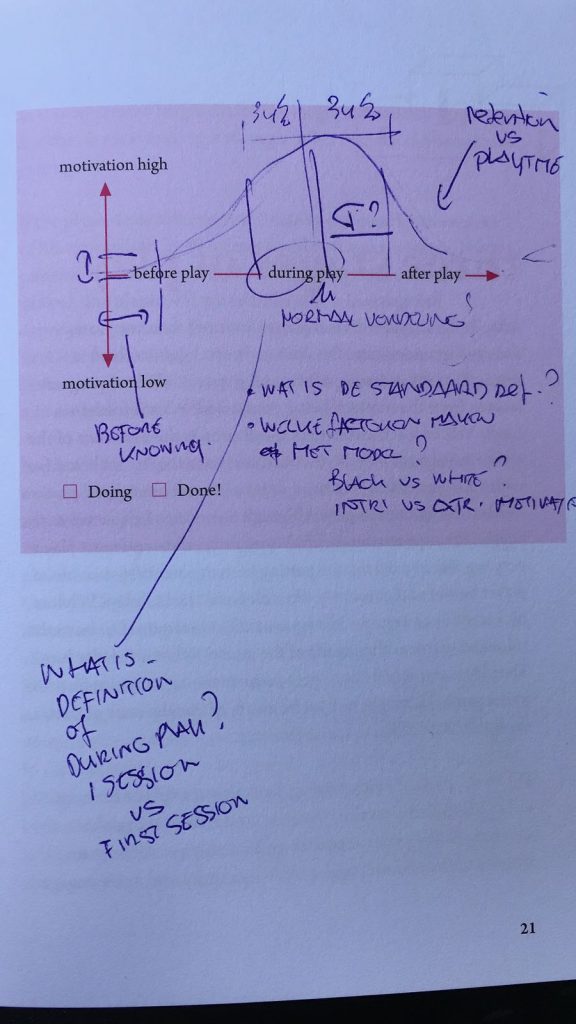 retention
vs
PLAYTIME
motivation high
σ?
before play
during play
after play
μ
motivation low
BEFORE
KNOWING.
• WAT IS DE STANDAARD Def.?
• WELKE fACTOREN MAKEN
HET MODEL?
BLACK VS WHITE?
INTRI VS EXTR. MOTIVATIE
Doing
Done!
WHAT IS
DEFINITION
of
DURING PLAY?
1 SESSION
VS
FIRST SESSION
21